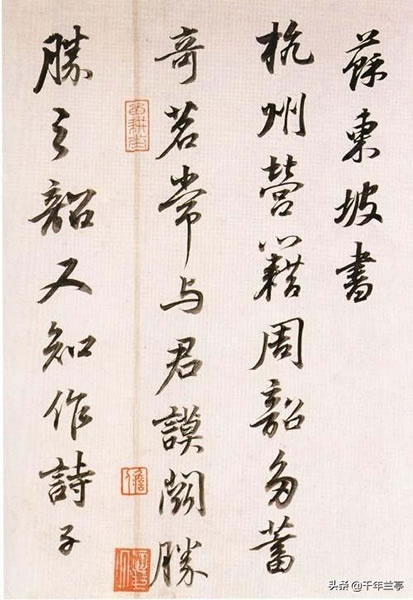 蘇東坡書
杭州營籍周韶多蓄
奇茗常与君謨鬭勝
勝之韶又知作詩子
头条 @千年兰亭